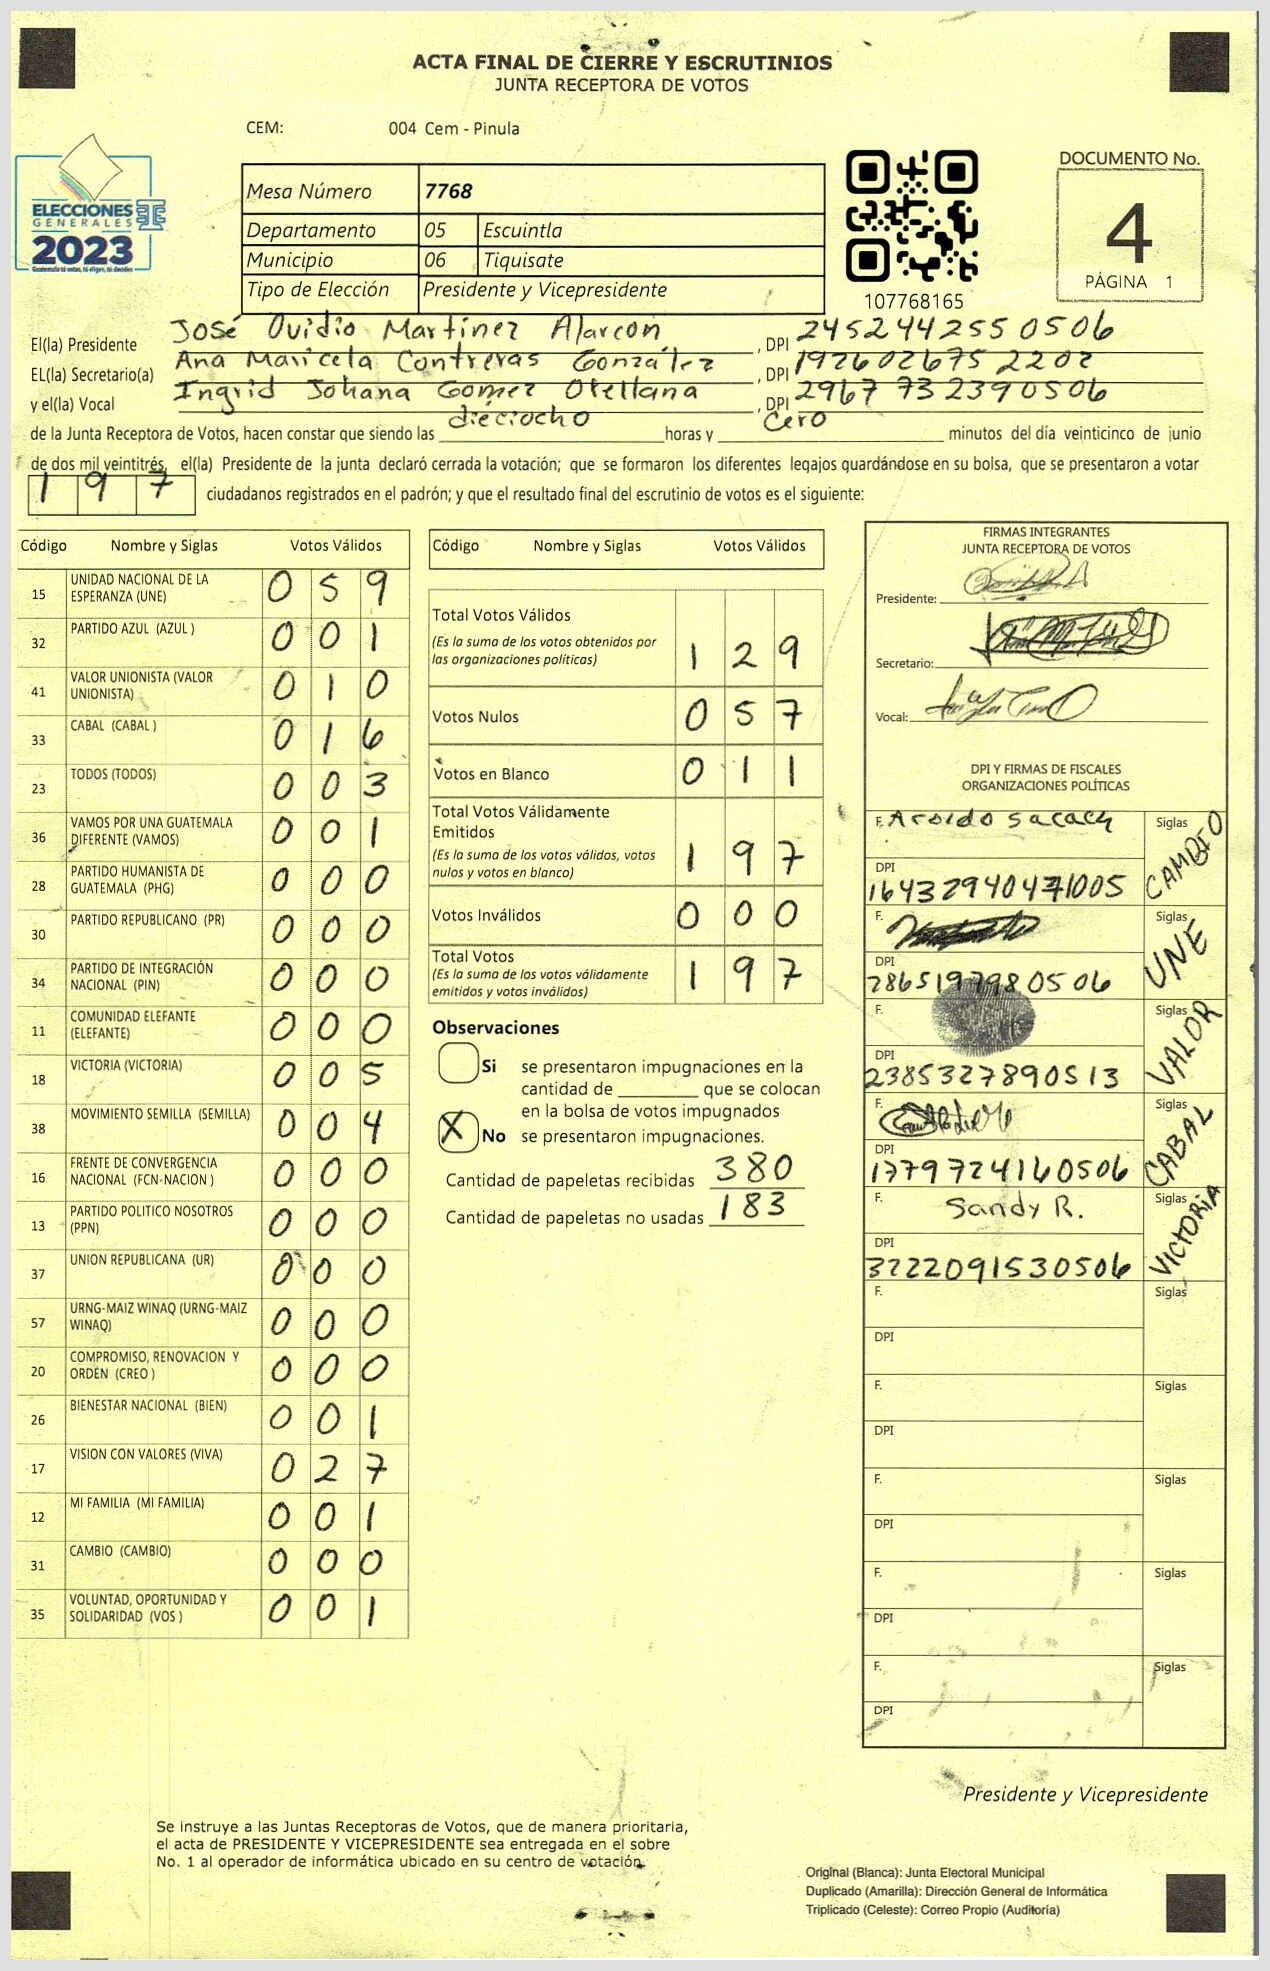 ACTA FINAL DE CIERRE Y ESCRUTINIOS
JUNTA RECEPTORA DE VOTOS
CEM: 004 Cem - Pinula
ELECCIONES
GENERALES
2023
Guatemala tú votas, tú eliges, tú decides
Mesa Número 7768
Departamento 05 Escuintla
Municipio 06 Tiquisate
Tipo de Elección Presidente y Vicepresidente
107768165
DOCUMENTO No.
4
PÁGINA 1
El(la) Presidente José Ovidio Martínez Alarcón, DPI 2452442550506
EL(la) Secretario(a) Ana Maricela Contreras González, DPI 1926026752202
y el(la) Vocal Ingrid Johana Gómez Orellana, DPI 2967732390506
de la Junta Receptora de Votos, hacen constar que siendo las dieciocho horas y cero minutos del día veinticinco de junio
de dos mil veintitrés, el(la) Presidente de la junta declaró cerrada la votación; que se formaron los diferentes legajos guardándose en su bolsa, que se presentaron a votar
197 ciudadanos registrados en el padrón; y que el resultado final del escrutinio de votos es el siguiente:
Código Nombre y Siglas Votos Válidos
15 UNIDAD NACIONAL DE LA ESPERANZA (UNE) 059
32 PARTIDO AZUL (AZUL ) 001
41 VALOR UNIONISTA (VALOR UNIONISTA) 010
33 CABAL (CABAL ) 016
23 TODOS (TODOS) 003
36 VAMOS POR UNA GUATEMALA DIFERENTE (VAMOS) 001
28 PARTIDO HUMANISTA DE GUATEMALA (PHG) 000
30 PARTIDO REPUBLICANO (PR) 000
34 PARTIDO DE INTEGRACIÓN NACIONAL (PIN) 000
11 COMUNIDAD ELEFANTE (ELEFANTE) 000
18 VICTORIA (VICTORIA) 005
38 MOVIMIENTO SEMILLA (SEMILLA) 004
16 FRENTE DE CONVERGENCIA NACIONAL (FCN-NACION ) 000
13 PARTIDO POLITICO NOSOTROS (PPN) 000
37 UNION REPUBLICANA (UR) 000
57 URNG-MAIZ WINAQ (URNG-MAIZ WINAQ) 000
20 COMPROMISO, RENOVACION Y ORDEN (CREO ) 000
26 BIENESTAR NACIONAL (BIEN) 001
17 VISION CON VALORES (VIVA) 027
12 MI FAMILIA (MI FAMILIA) 001
31 CAMBIO (CAMBIO) 000
35 VOLUNTAD, OPORTUNIDAD Y SOLIDARIDAD (VOS ) 001
Código Nombre y Siglas Votos Válidos
Total Votos Válidos 129
(Es la suma de los votos obtenidos por
las organizaciones políticas)
Votos Nulos 057
Votos en Blanco 011
Total Votos Válidamente
Emitidos 197
(Es la suma de los votos válidos, votos
nulos y votos en blanco)
Votos Inválidos 000
Total Votos 197
(Es la suma de los votos válidamente
emitidos y votos inválidos)
Observaciones
Si se presentaron impugnaciones en la
cantidad de ________ que se colocan
en la bolsa de votos impugnados
X No se presentaron impugnaciones.
Cantidad de papeletas recibidas 380
Cantidad de papeletas no usadas 183
FIRMAS INTEGRANTES
JUNTA RECEPTORA DE VOTOS
Presidente:
Secretario:
Vocal:
DPI Y FIRMAS DE FISCALES
ORGANIZACIONES POLÍTICAS
F. Siglas CAMBIO
DPI 1643294047 1005
F. Siglas UNE
DPI 2865197980506
F. Siglas VALOR
DPI 2385327890513
F. Siglas CABAL
DPI 1779724160506
F. Sandy R. Siglas VICTORIA
DPI 3222091530506
F. Siglas
DPI
F. Siglas
DPI
F. Siglas
DPI
F. Siglas
DPI
F. Siglas
DPI
Presidente y Vicepresidente
Se instruye a las Juntas Receptoras de Votos, que de manera prioritaria,
el acta de PRESIDENTE Y VICEPRESIDENTE sea entregada en el sobre
No. 1 al operador de informática ubicado en su centro de votación.
Original (Blanca): Junta Electoral Municipal
Duplicado (Amarilla): Dirección General de Informática
Triplicado (Celeste): Correo Propio (Auditoría)